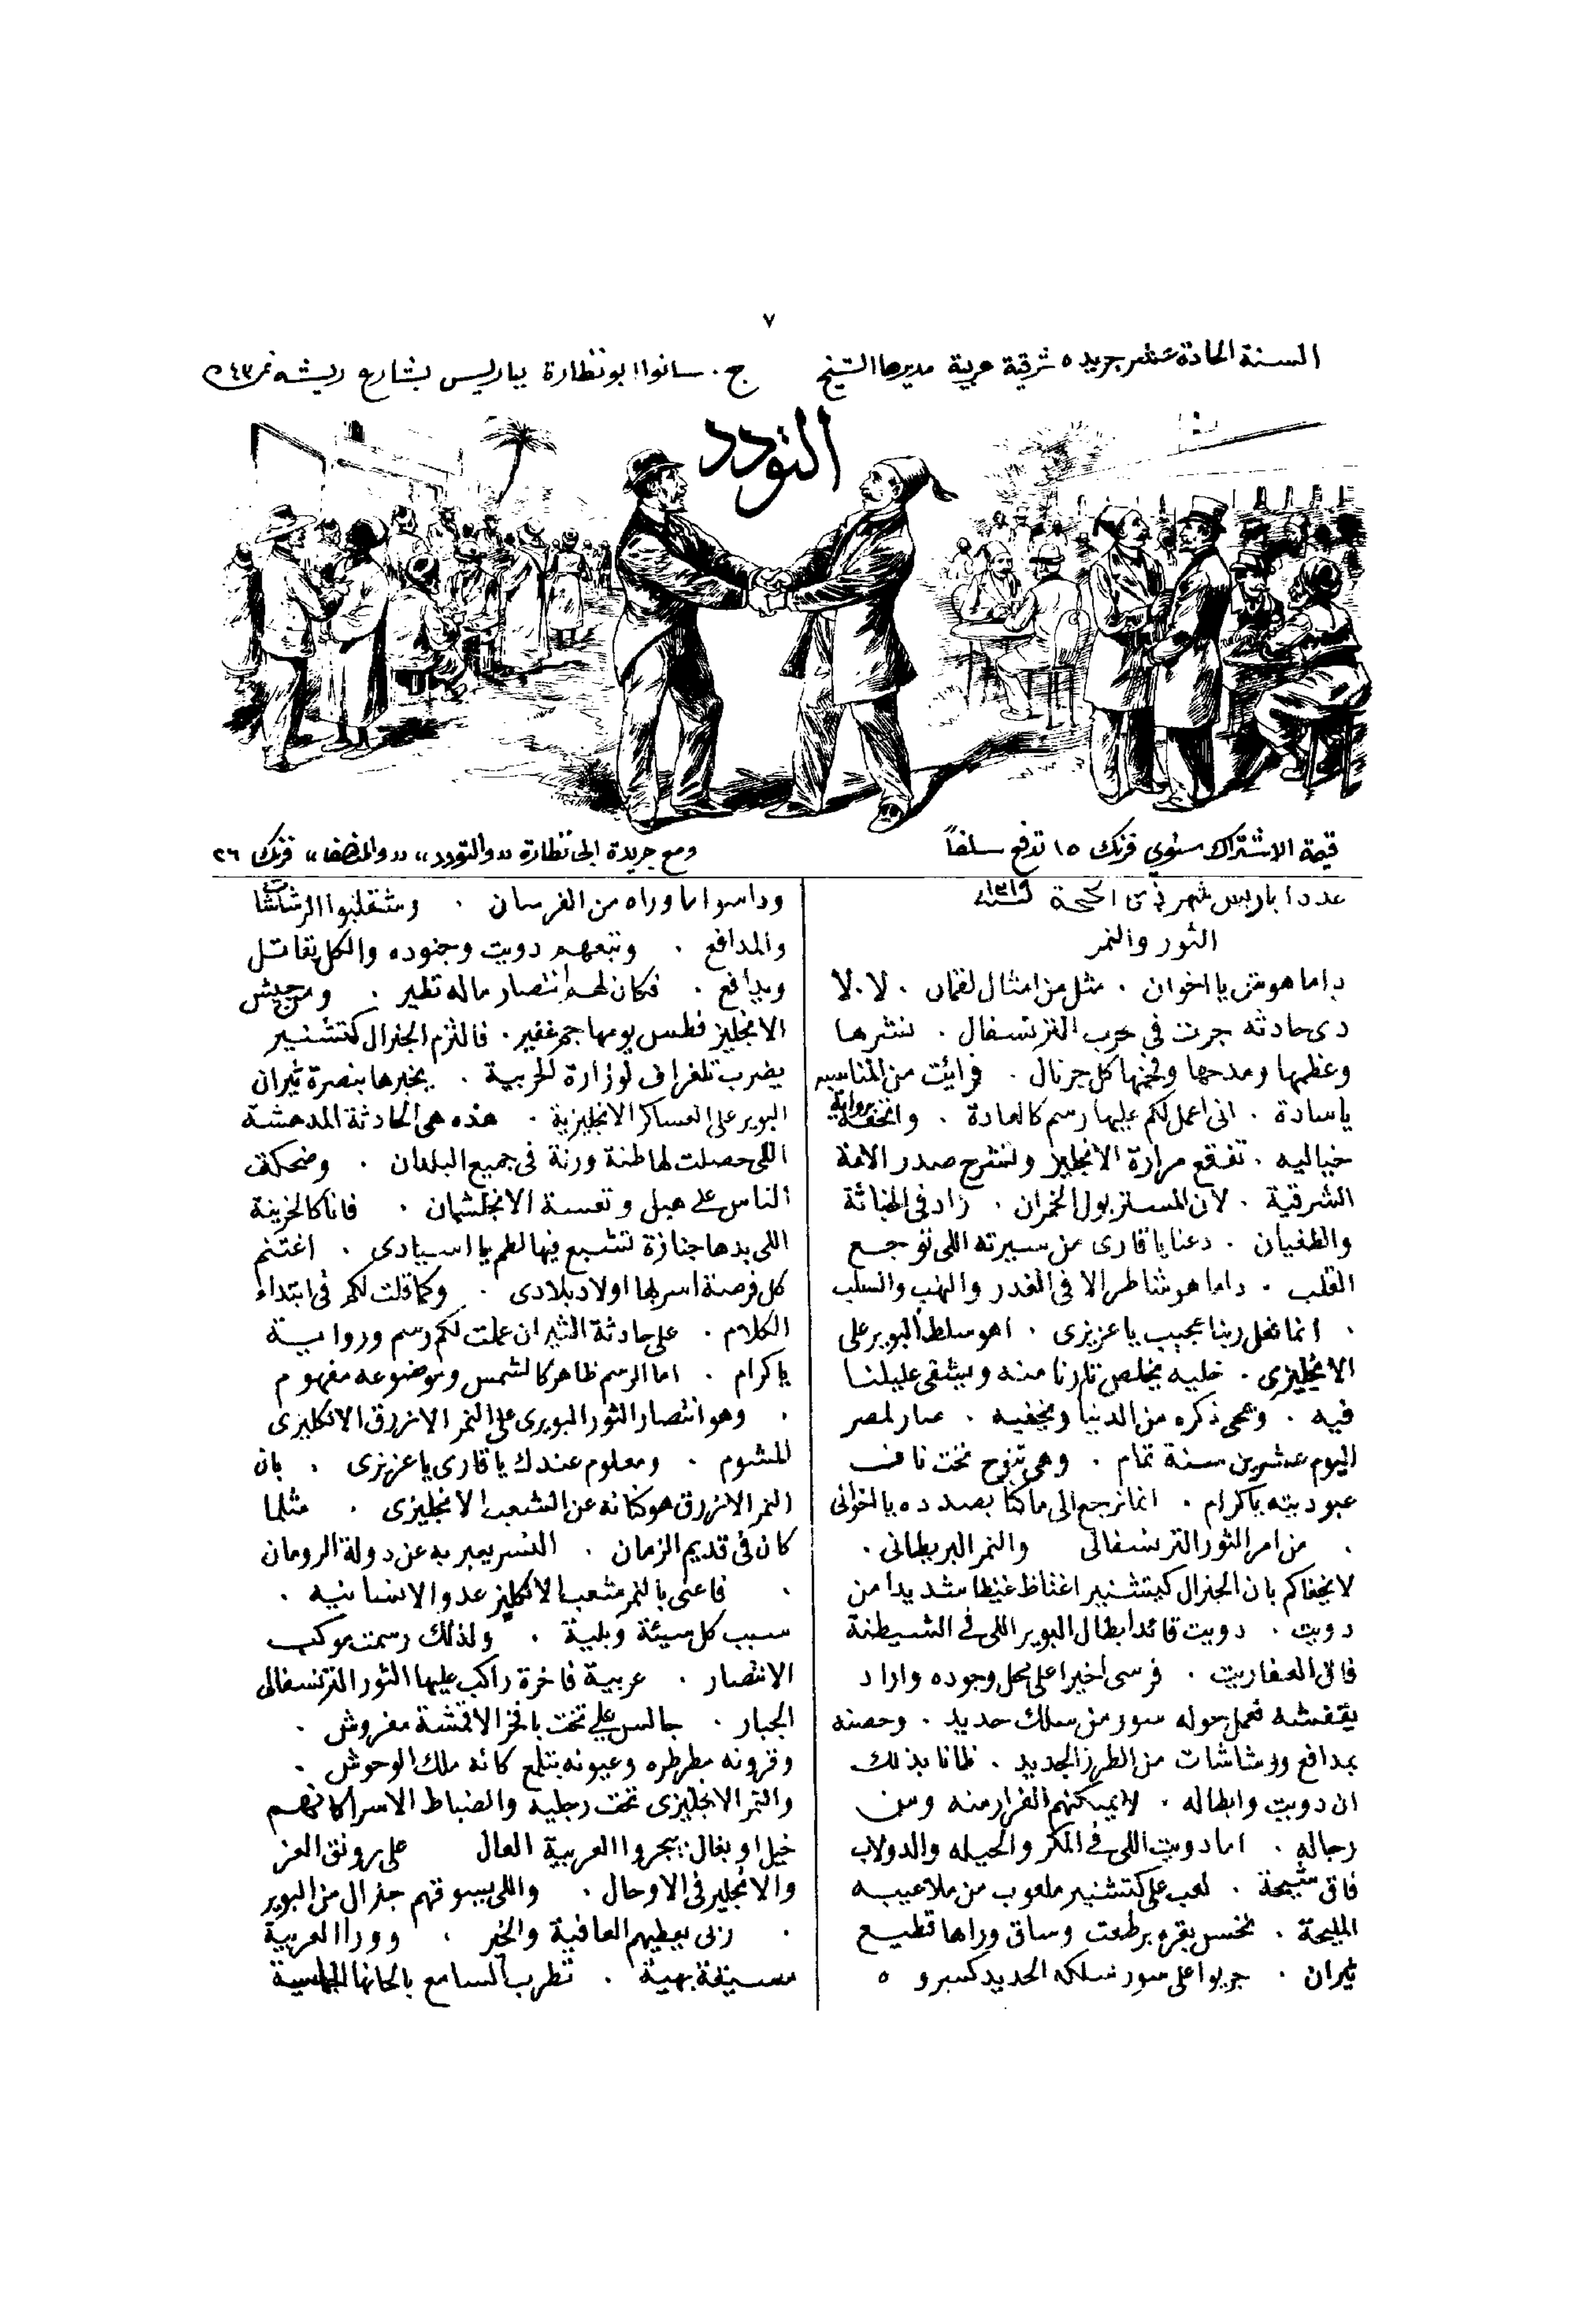 ٧
السنة الحادة عشر جريده شرقية عربية مديرها الشيخ ج. سانوا ابو نظارة بباريس بشارع ريشه نمر ٤٣
التودد
قيمة الاشتراك سنوي فرنك ١٥ تدفع سلفاً
ومع جريدة ابى نظارة «والتودد» «والمنصف» فرنك ٢٦
عدد ١ باريس شهر ذى الحجة سنة ١٣١٩
الثور والنمر
دا ما هوش يا اخوان . مثل من امثال لقمان . لا . لا
دى حادثه جرت فى حرب الترنسفال . نشرها
وعظمها ومدحها وفخمها كل جرنال . فرائيت من المناسبه
يا سادة . انى اعمل لكم عليها رسم كالعادة . واتحفه برواية
خياليه . تفقع مرارة الانجليز وتشرح صدر الامة
الشرقية . لان المستر بول الخمران . زاد فى الخباثة
والطغيان . دعنا يا قارى من سيرته اللى توجع
القلب . دا ما هو شاطر الا فى الغدر والنهب والسلب
. انما فعل ربنا عجيب يا عزيزى . اهو سلط البوير على
الانجليزى . خليه يخلص تارنا منه ويشفى غليلنا
فيه . ويمحى ذكره من الدنيا ويخفيه . صار لمصر
اليوم عشرين سنة تمام . وهى تنوح تحت ناف
عبوديته يا كرام . انما نرجع الى ما كنا بصدده يا اخوانى
. من امر الثور الترنسفالى والنمر البريطانى .
لا يخفاكم بان الجنرال كيتشنير اغتاظ غيظا شديدا من
دويت . دويت قائد ابطال البوير اللى فى الشيطنة
فاق العفاريت . فرسى اخيرا على محل وجوده واراد
يقفشه فعمل حوله سور من سلك حديد . وحصنه
بمدافع ورشاشات من الطرز الجديد . ظانا بذلك
ان دويت وابطاله . لا يمكنهم الفرار منه ومن
رجاله . اما دويت اللى فى المكر والحيله والدولاب
فاق شيحة . لعب على كتشنير ملعوب من ملاعيبه
المليحة . نخس بقره برطعت وساق وراها قطيع
ثيران . جريوا على سور سلكه الحديد كسروه
وداسوا ما وراه من الفرسان . وشقلبوا الرشاشات
والمدافع . وتبعهم دويت وجنوده والكل يقاتل
ويدافع . فكان لهم انتصار ماله نظير . ومن جيش
الانجليز فطس يومها جم غفير . فالتزم الجنرال كتشنير
يضرب تلغراف لوزارة الحربية . يخبرها بنصرة ثيران
البوير على العساكر الانجليزية . هذه هى الحادثة المدهشة
اللى حصلت لها طنة ورنة فى جميع البلدان . وضحكت
الناس على هبل وتعسة الانجلشمان . فانا كالحزينة
اللى بدها جنازة تشبع فيها لطم يا اسيادى . اغتنم
كل فرصة اسر بها اولاد بلادى . وكما قلت لكم فى ابتداء
الكلام . على حادثة الثيران عملت لكم رسم ورواية
يا كرام . اما الرسم ظاهر كالشمس وموضوعه مفهوم
. وهو انتصار الثور البويرى على النمر الازرق الانكليزى
المشوم . ومعلوم عندك يا قارى يا عزيزى . بان
النمر الازرق هو كناية عن الشعب الانجليزى . مثلما
كان فى قديم الزمان . النسر يعبر به عن دولة الرومان
. فاعنى بالنمر شعب الانكليز عدو الانسانيه .
سبب كل سيئة وبلية . ولذلك رسمت موكب
الانتصار . عربية فاخرة راكب عليها الثور الترنسفالى
الجبار . جالس على تخت بافخر الاقمشة مفروش .
وقرونه مطرطره وعيونه بتلمع كانه ملك الوحوش .
والنمر الانجليزى تحت رجليه والضباط الاسرا كانهم
خيل او بغال بيجروا العربية العال على رونق العز
والانجليز فى الاوحال . واللى بيسوقهم جنرال من البوير
. ربى يعطيهم العافية والخير . وورا العربية
مسيقة بهية . تطرب السامع بالحانها الحماسية